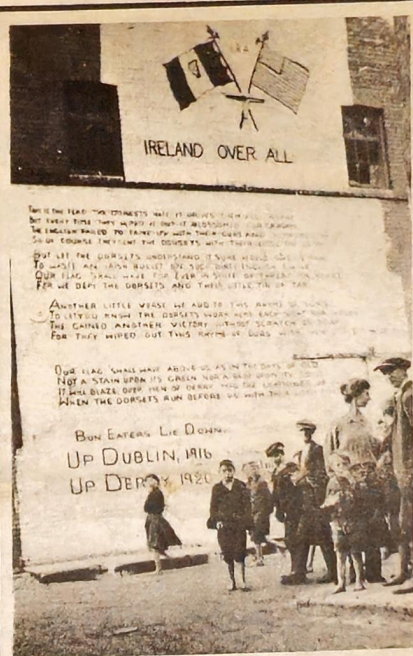 IRA
IRELAND OVER ALL
THIS IS THE FLAG THE DORSETS HATE IT
BUT EVERY TIME THEY WIPED IT OUT IT BLOSSOMED
THE ENGLISH FAILED TO WITH THEIR GUNS AND
SO OF COURSE THEY SENT THE DORSETS WITH THEIR
BUT LET THE DORSETS UNDERSTAND IT SURE WOULD
TO WASTE AN IRISH BULLET ON SUCH DIRTY ENGLISH
OUR FLAG SHALL WAVE FOR EVER IN SPITE OF THREAT OR
FOR WE DEFY THE DORSETS AND THEIR LITTLE TIN OF TAR
ANOTHER LITTLE VERSE WE ADD TO THIS RHYME OF OURS
TO LET YOU KNOW THE DORSETS WORK HERE EACH NIGHT FOR
THE GAINED ANOTHER VICTORY WITHOUT SCRATCH OR
FOR THEY WIPED OUT THIS RHYME OF OURS WITH
OUR FLAG SHALL WAVE ABOVE US AS IN THE DAYS OF OLD
NOT A STAIN UPON ITS GREEN NOR A UPON ITS
IT WILL BLAZE OVER MEN OF DERRY AND THE
WHEN THE DORSETS RUN BEFORE US WITH THEIR
BUN EATERS LIE DOWN
UP DUBLIN, 1916
UP DERRY 1920